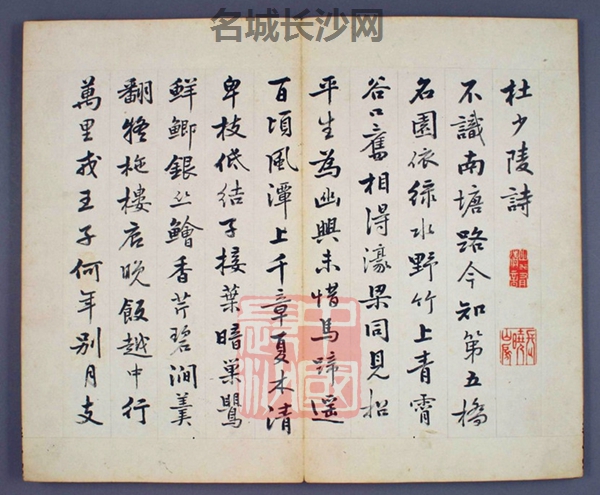 名城长沙网
杜少陵詩
不識南塘路今知第五橋
名園依綠水野竹上青霄
谷口舊相得濠梁同見招
平生為幽興未惜馬蹄遥
百頃風潭上千章夏木清
卑枝低結子接葉暗巢鶯
鮮鯽銀丝鱠香芹碧澗羹
翻疑柂樓底晚飯越中行
萬里戎王子何年别月支
中國長沙